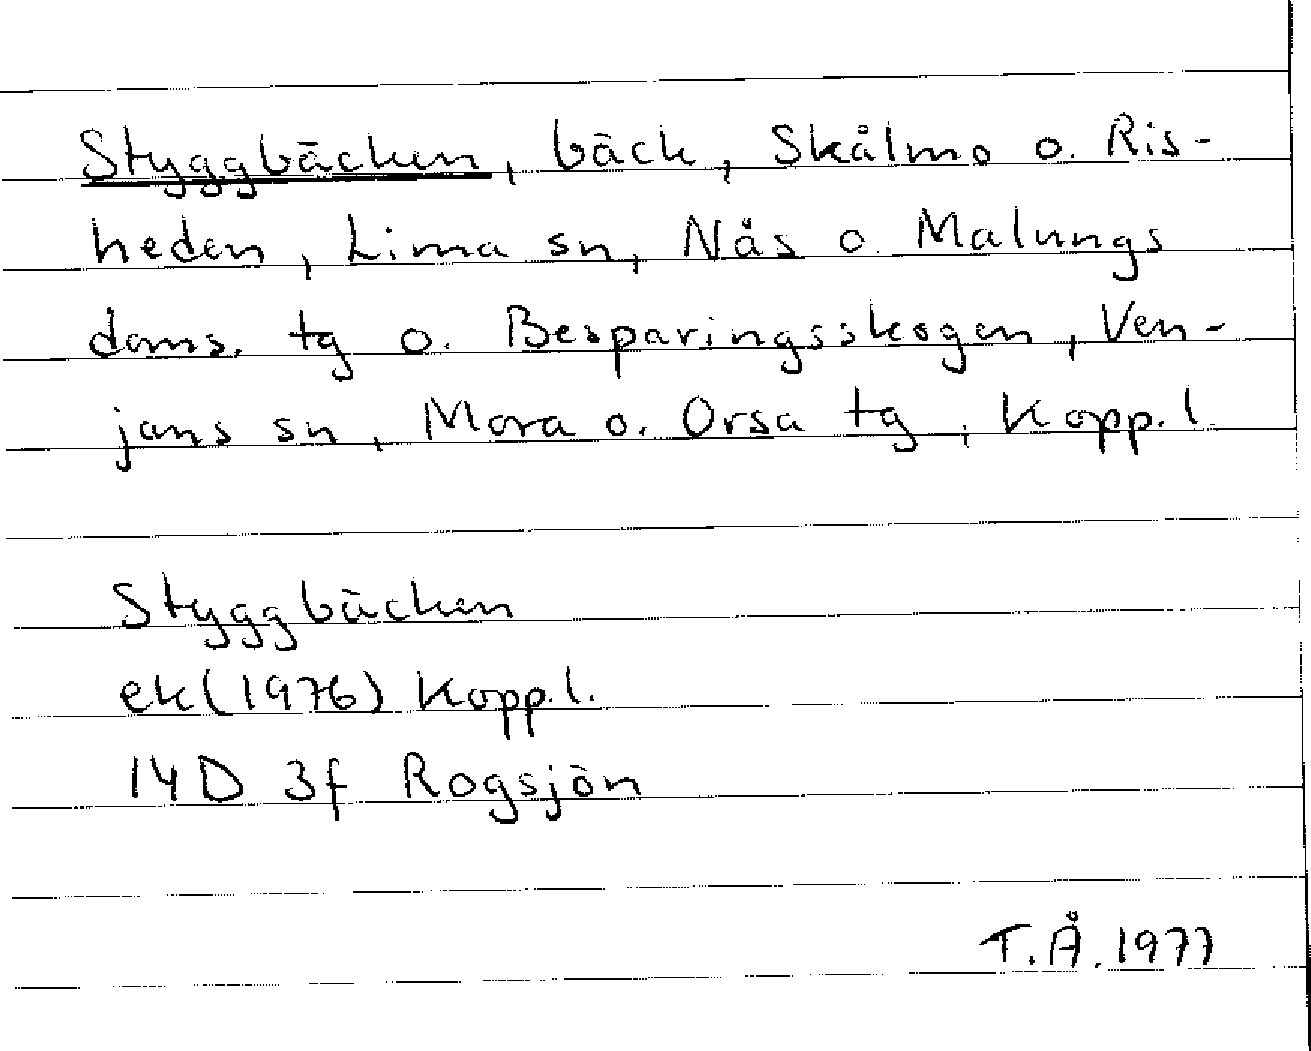 Styggbäcken, bäck, Skålmo o. Ris-
heden, Lima sn, Nås o. Malungs
doms. tg o. Besparingsskogen, Ven-
jans sn, Mora o. Orsa tg, Kopp.l.
Styggbäcken
ek (1976) Kopp.l.
14D 3f Rogsjön
T.Å. 1977